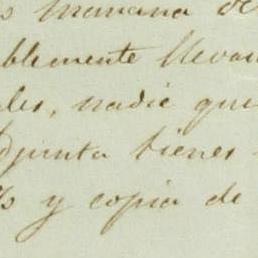 manana de
blemente lleva
les, nadie que
Djunta tienes
y copia de